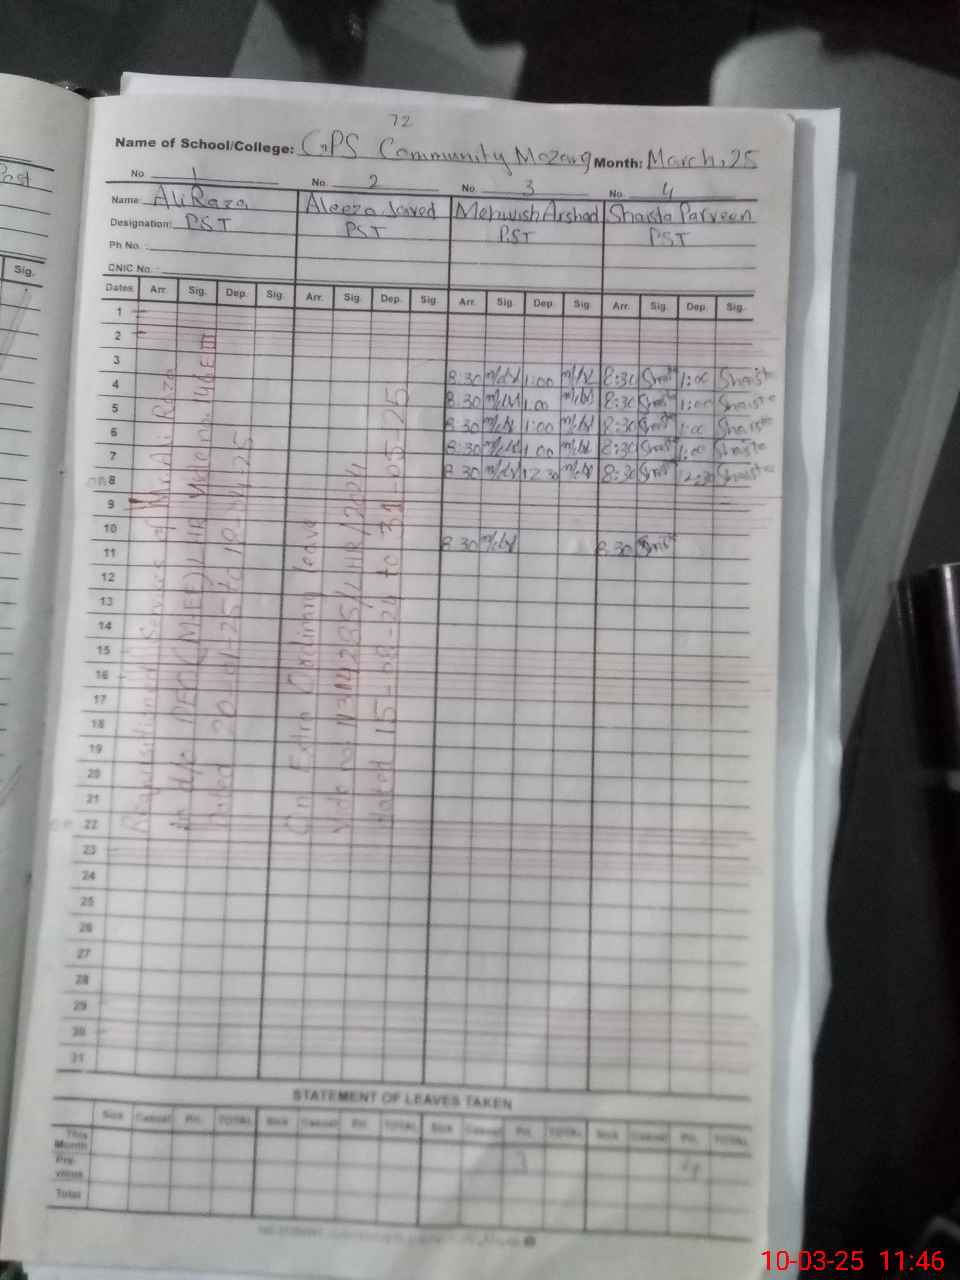 72
Name of School/College: GPS Community Mozang Month: March, 25
No. 1 No. 2 No. 3 No. 4
Name: Ali Raza Aleeza Javed Mehwish Arshad Shaista Parveen
Designation: PST PST PST PST
Ph No.:
CNIC No.:
Dates Arr. Sig. Dep. Sig. Arr. Sig. Dep. Sig. Arr. Sig. Dep. Sig. Arr. Sig. Dep. Sig.
1
2
3
4 8:30 1:00 8:30 1:00 Shaista
5 8:30 1:00 8:30 1:00 Shaista
6 8:30 1:00 8:30 1:00 Shaista
7 8:30 1:00 8:30 1:00 Shaista
8 8:30 12:30 8:30 12:30 Shaista
9
10
11 8:30 8:30
12
13
14
15
16
17
18
19
20
21
22
23
24
25
26
27
28
29
30
31
Requisitioned Services of Mr. Ali Raza
Dated 20-01-25 to 18-04-25
On Extra Ordinary leave
dated 15-08-24 to 31-05-25
STATEMENT OF LEAVES TAKEN
Sick Casual Pri. TOTAL Sick Casual Pri. TOTAL Sick Casual Pri. TOTAL Sick Casual Pri. TOTAL
This Month
Pre-vious
Total
Sig.
10-03-25 11:46